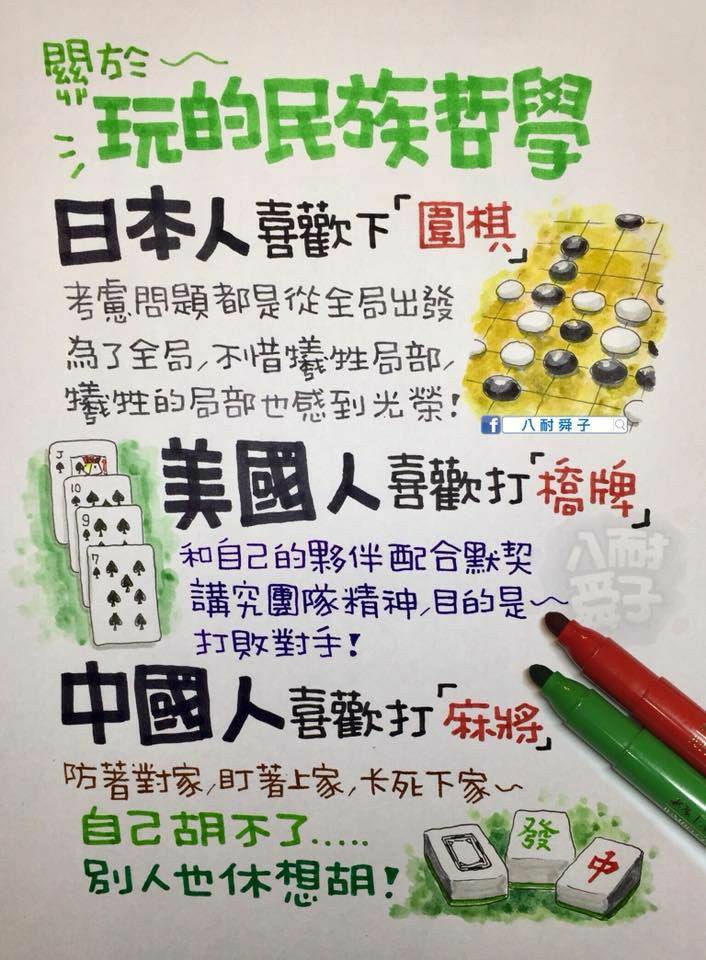 關於~
玩的民族哲學
日本人喜歡下「圍棋」
考慮問題都是從全局出發
為了全局,不惜犧牲局部,
犧牲的局部也感到光榮!
八耐舜子
美國人喜歡打「橋牌」
J
10
9
7
和自己的夥伴配合默契
講究團隊精神,目的是~
打敗對手!
八耐
舜子
中國人喜歡打「麻將」
防著對家,盯著上家,卡死下家~
自己胡不了.....
別人也休想胡!
發
中